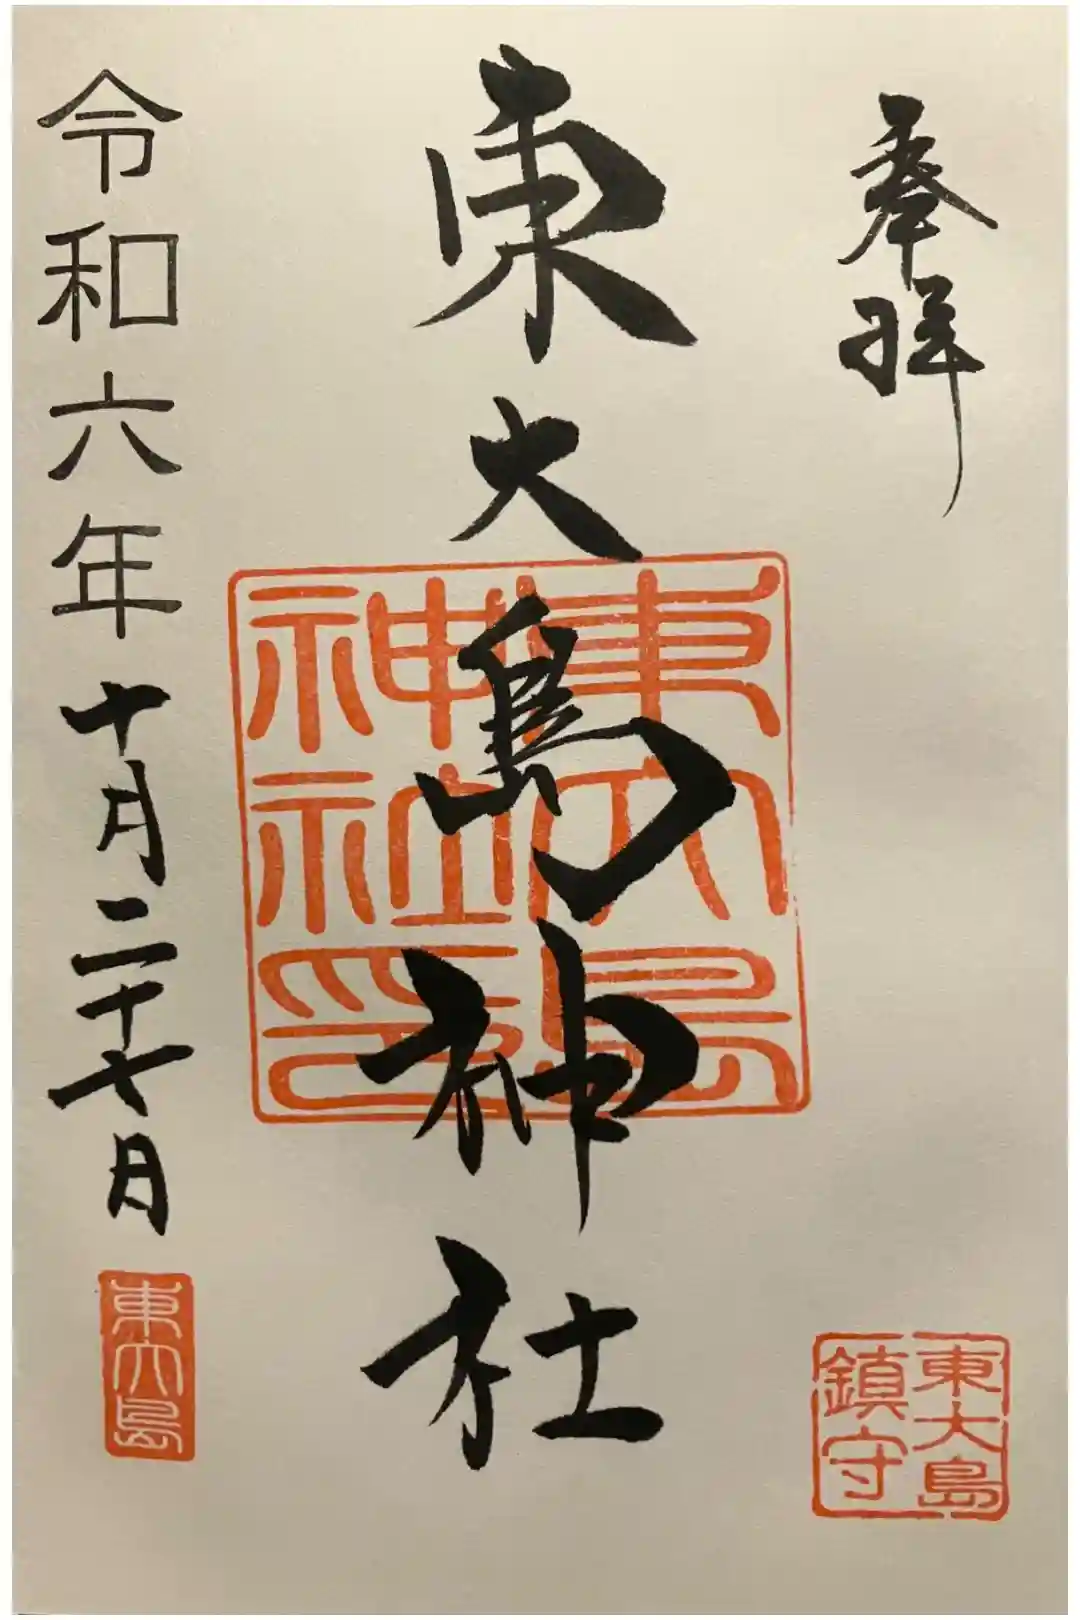 奉拝
東大島
鎮守
東大島神社
東大島
神社印
令和六年十月二十七日
東大島